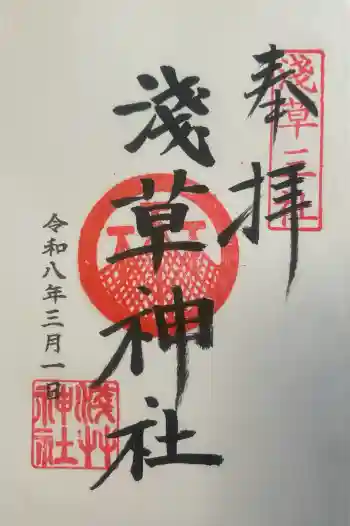 奉拝
淺草三社
淺草神社
令和八年三月一日
淺草神社